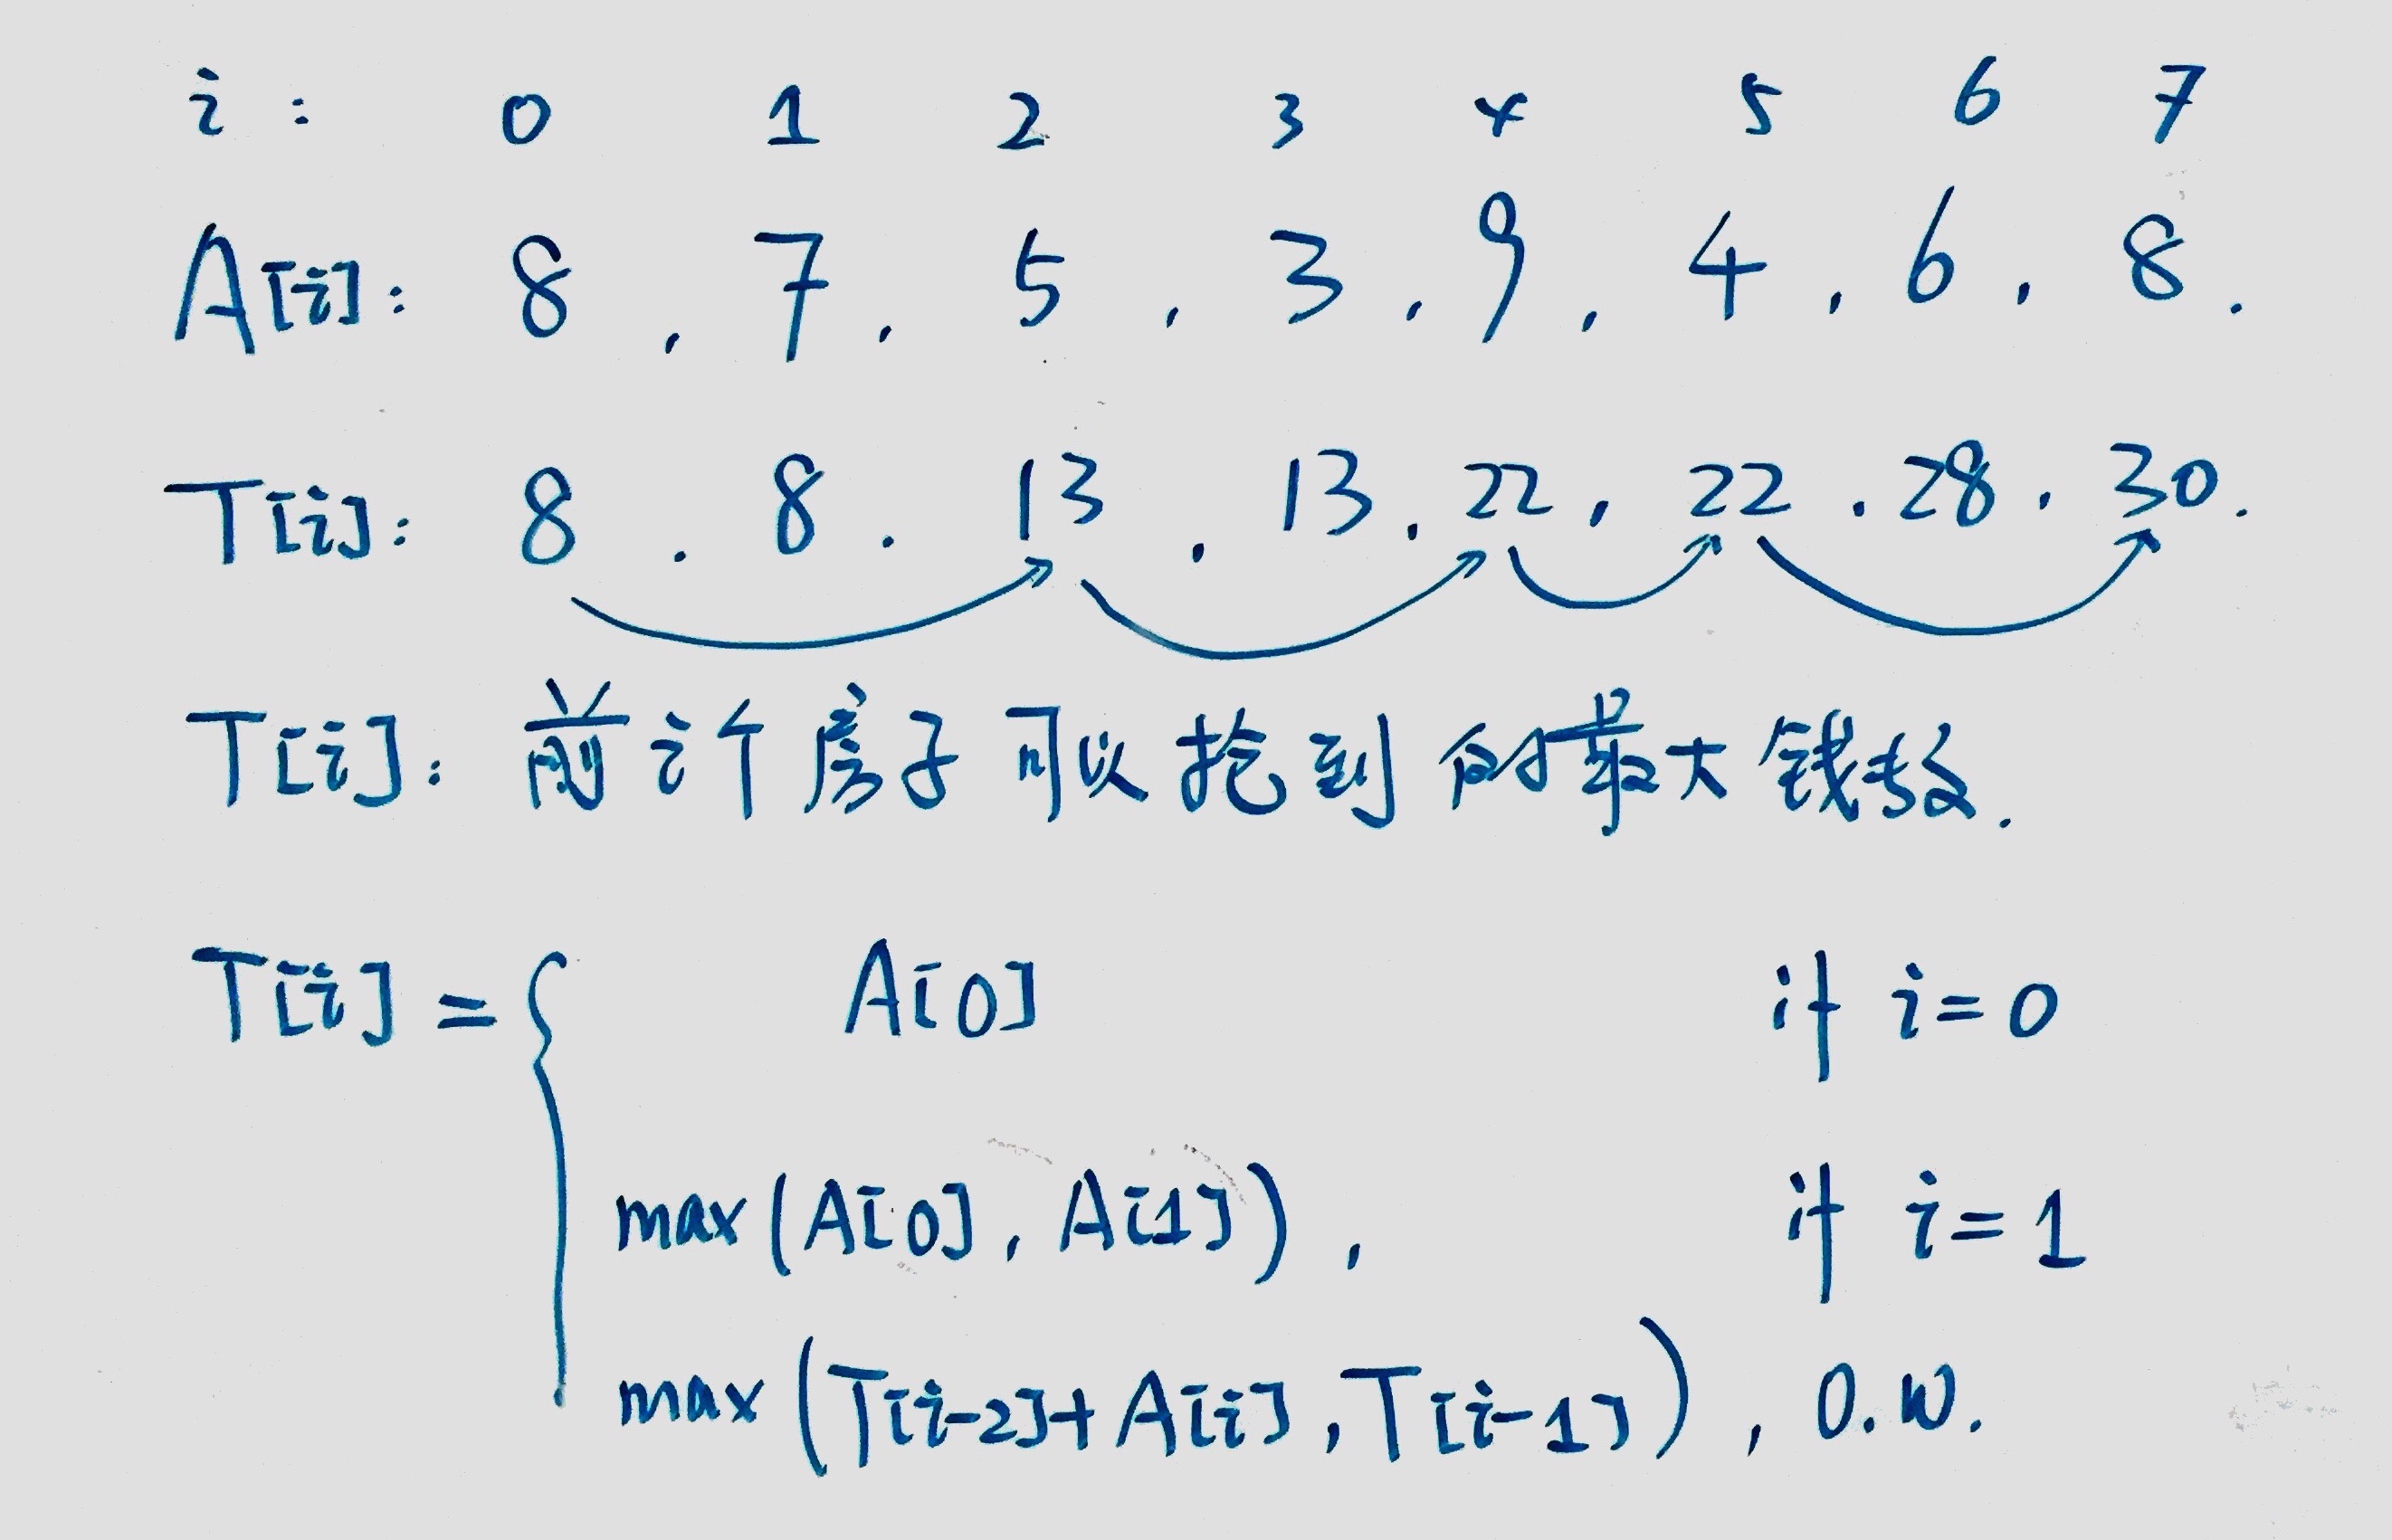 i : 0 1 2 3 4 5 6 7
A[i]: 8 , 7 , 5 , 3 , 9 , 4 , 6 , 8 .
T[i]: 8 . 8 . 13 , 13 , 22 , 22 . 28 . 30 .
T[i]: 前 i 个房子可以抢到的最大钱数.
T[i] = { A[0] if i=0
max(A[0], A[1]), if i=1
max(T[i-2]+A[i], T[i-1]), O.W.